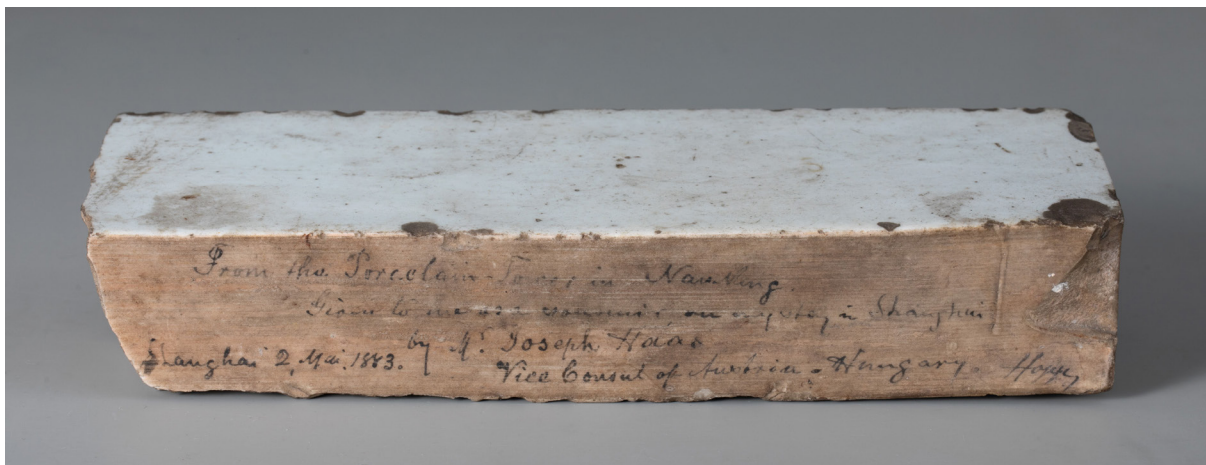 From the Porcelain-Tower in Nanking.
Given to me as a souvenir on my stay in Shanghai
by Mr. Joseph Haas
Shanghai 2, Mai, 1883. Vice Consul of Austria-Hungary. Hopp